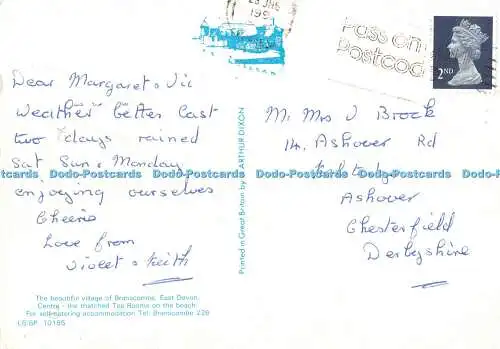 Pass on
Postcod
2ND
Dear Margaret & Vic
Weather better last
two days rained
Sat Sun & Monday
enjoying ourselves
Cheerio
Love from
Violet & Keith
The beautiful village of Branscombe, East Devon.
Centre - the thatched Tea Rooms on the beach.
For self-catering accommodation Tel: Branscombe 228
LS/BP 10185
Printed in Great Britain by ARTHUR DIXON
M. Mrs V Brock
14, Ashover Rd
Ashover
Chesterfield
Derbyshire
Dodo-Postcards Dodo-Postcards Dodo-Postcards Dodo-Postcards Dodo-Postcards Dodo-Postcards